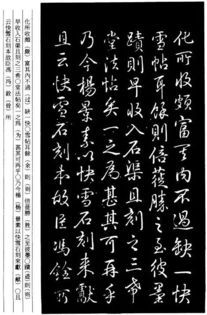 化所收頗富其内不過缺一快
雪帖耳餘則倍蓰勝之至彼墨
蹟則早收入石渠且刻之三希
堂法帖矣一之爲甚其可再乎
乃今楊景素以快雪石刻来獻
且云快雪石刻本故臣馮銓所
化所收頗（颇）富其内不過（过）缺一快雪帖耳餘（余）則（则）倍蓰勝（胜）之至彼墨蹟（迹）則（则）
早收入石渠且刻之三希堂法帖矣一之爲（为）甚其可再乎乃今楊（杨）景素以快雪石刻来獻（献）且
云快雪石刻本故臣馮（冯）銓（铨）所